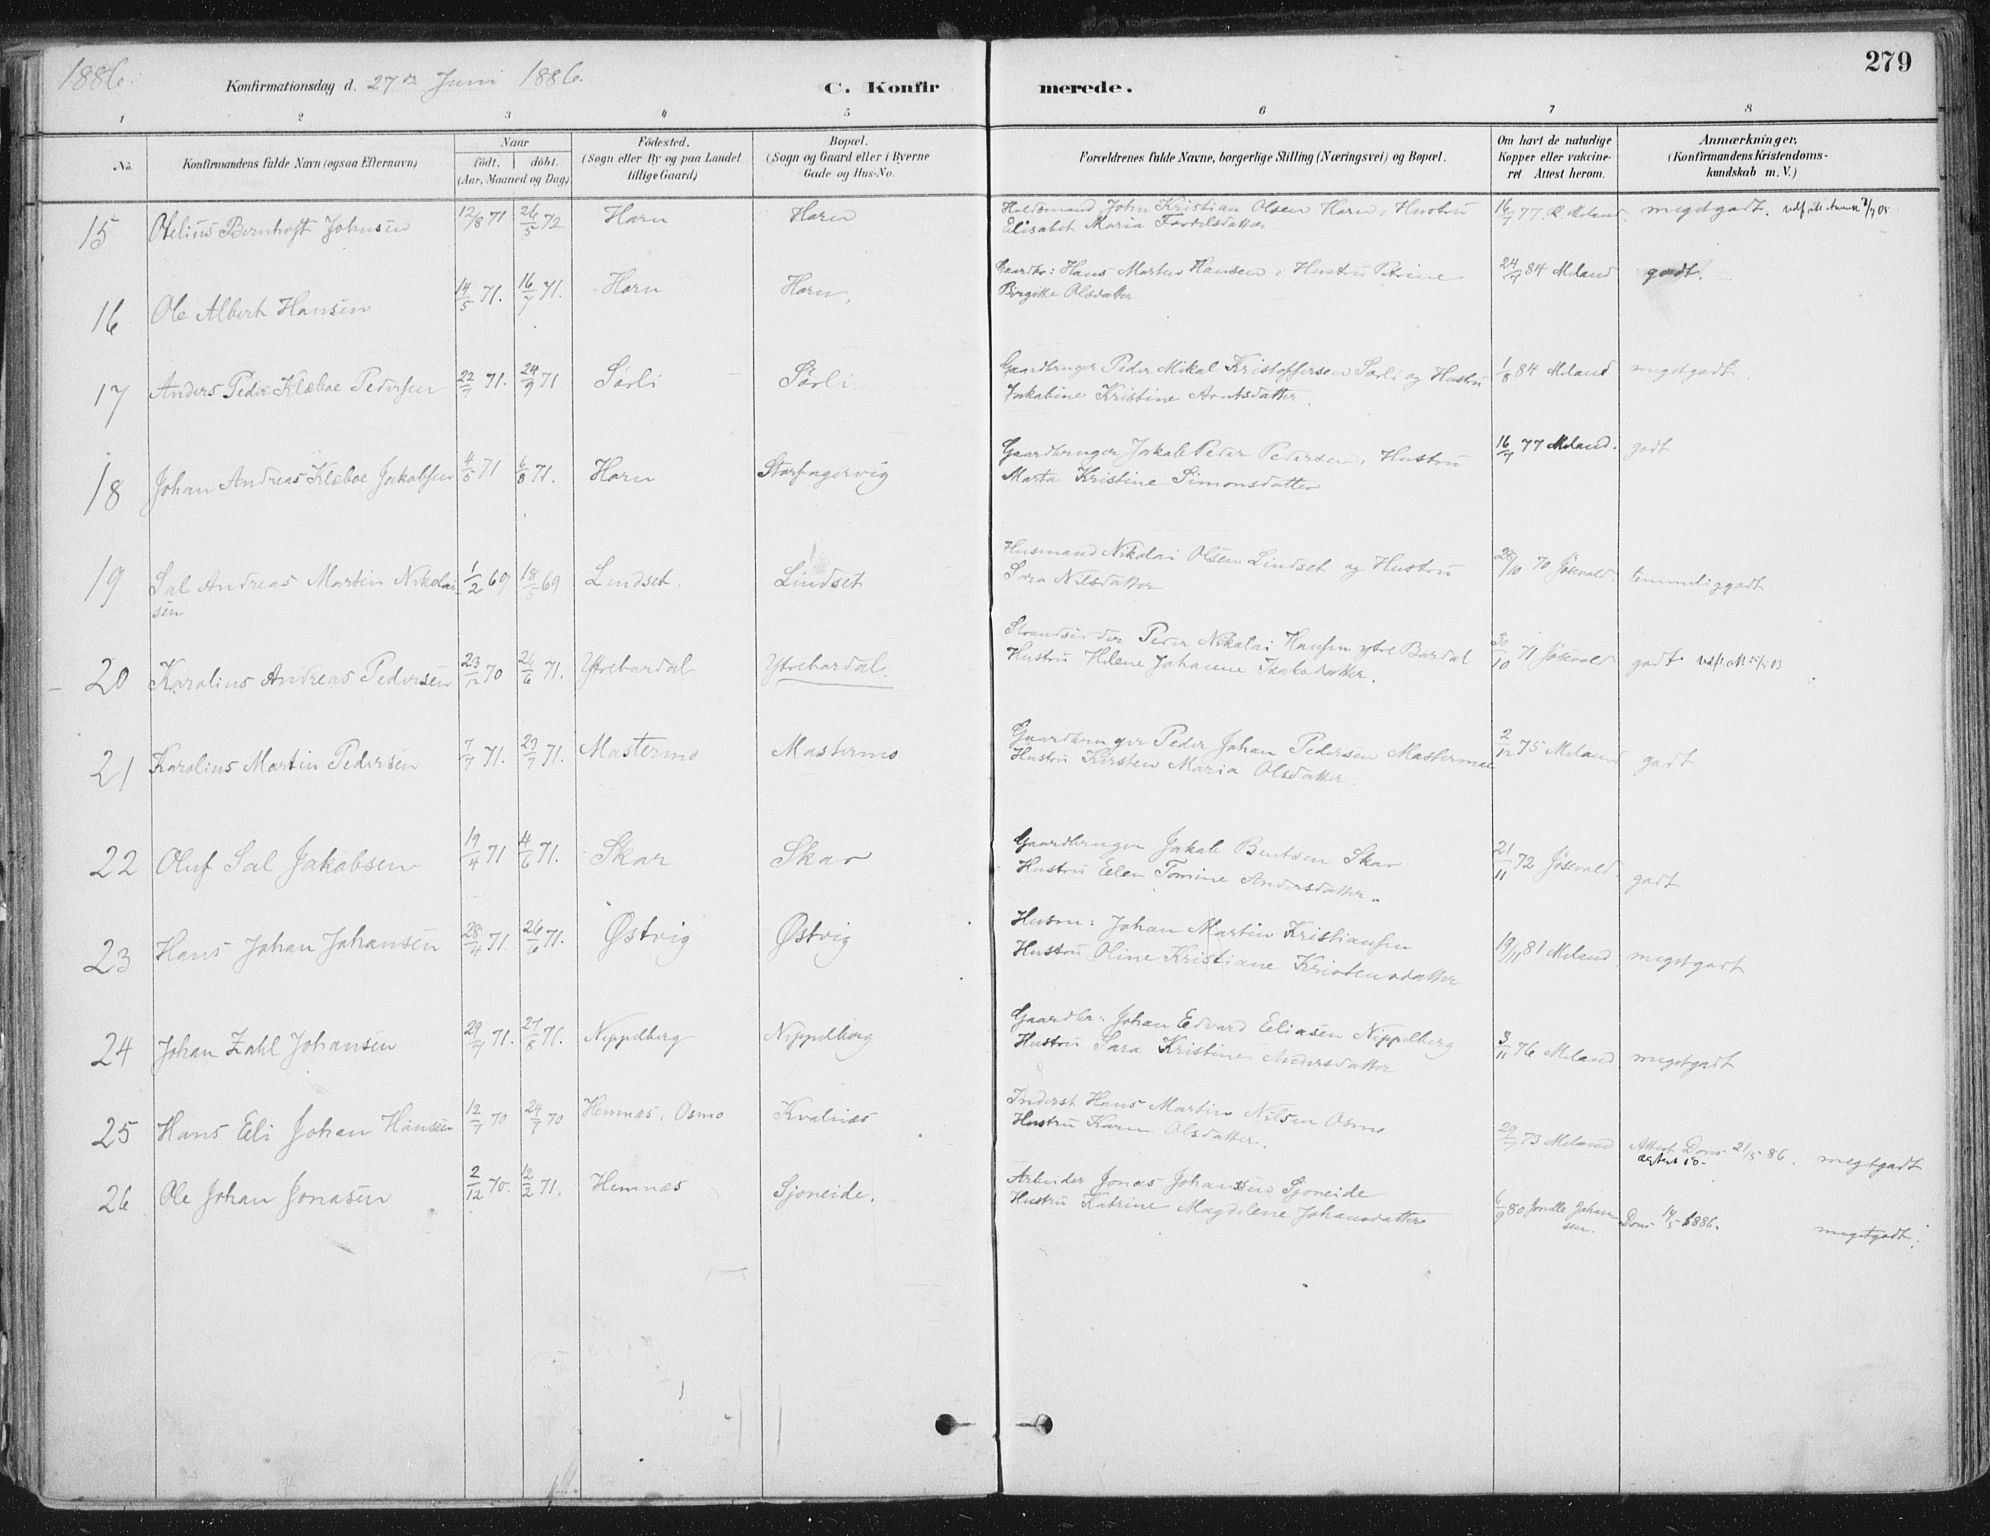 1886.
Konfirmationsdag d. 27de Juni 1886.
C. Konfirmerede.
279
1 2 3 4 5 6 7 8
No.
Konfirmandens fulde Navn (ogsaa Efternavn)
Naar
født. døbt.
(Aar, Maaned og Dag)
Fødested.
(Sogn eller By og paa Landet
tillige Gaard)
Bopæl.
(Sogn og Gaard eller i Byerne
Gade og Hus-No.
Forældrenes fulde Navne, borgerlige Stilling (Næringsvei) og Bopæl.
Om havt de naturlige
Kopper eller vakcine-
ret. Attest herom.
Anmærkninger.
(Konfirmandens Kristendoms-
kundskab m. V.)
15 Otelius Bernhoft Johnsen 12/8 71 26/5 72 Horn Horn John Kristian Olsen Horn, Hustru 16/7 77. R. Meland. megetgodt.
Elisabet Maria
16 Ole Albert Hansen 14/5 71. 16/7 71. Horn Horn, Gaardbr: Hans Martin Hansen, Hustru Petrine 24/9 84 Meland godt.
Birgitte Olsdatter
17 Anders Peder Klæboe Pedersen 22/7 71. 24/9 71 Sørli Sørli Gaardbruger Peder Mikal Kristoffersen Sørli og Hustru 1/8 84 Meland megetgodt.
Jakobine Kristine Arntsdatter.
18 Johan Andreas Klæboe Jakobsen 4/5 71 6/8 71. Horn Storfugervig Gaardbruger Jakob Peder Pedersen, Hustru 16/7 77 Meland. godt
Marta Kristine Simonsdatter
19 Sal Andreas Martin Nikolai 1/2 69 18/5 69 Lindset. Lindset Husmand Nikolai Olsen Lindset og Hustru 28/10 70 Jøsevald temmeliggodt
sen Sara Nilsdatter
20 Karolius Andreas Pedersen 23/12 70 26/6 71. Ytrebardal Ytrebardal. Strandsidder Peder Nikolai Hansen ytre Bardal 30/10 71 Jøsevald godt
Hustru Helene Johanne Isaksdatter.
21 Karolius Martin Pedersen 7/7 71. 23/7 71. Mastermo Mastermo Gaardbruger Peder Johan Pedersen Mastermo 2/12 75 Meland godt
Hustru Kirsten Maria Olsdatter.
22 Oluf Sal Jakobsen 19/4 71 4/6 71. Skar Skar Gaardbruger Jakob Bentsen Skar 21/11 72 Jøsevald godt
Hustru Elen Tomine Andersdatter.
23 Hans Johan Johansen 28/4 71. 26/6 71. Østvig Østvig Husm: Johan Martin Kristiansen 19/11 81 Meland megetgodt
Hustru Oline Kristiane Kristensdatter
24 Johan Zahl Johansen 29/7 71. 27/8 71. Nippelberg Nippelberg Gaardbr: Johan Edvard Eliasen Nippelberg 3/11 76 Meland megetgodt
Hustru Sara Kristine Andersdatter
25 Hans Eli Johan Hansen 12/7 70 24/7 70 Hemnæs, Osmo Kvalnæs Inderst Hans Martin Nilsen Osmo 29/7 73 Meland Attest Døns 21/5 86. megetgodt
Hustru Karen Olsdatter.
26 Ole Johan Jonasen 2/12 70. 12/2 71. Hemnæs Sjoneide. Arbeider Jonas Johanssen Sjoneide 6/9 80 Johan Døns 14/5 1886. megetgodt.
sen.
Hustru Katrine Magdelene Johansdatter